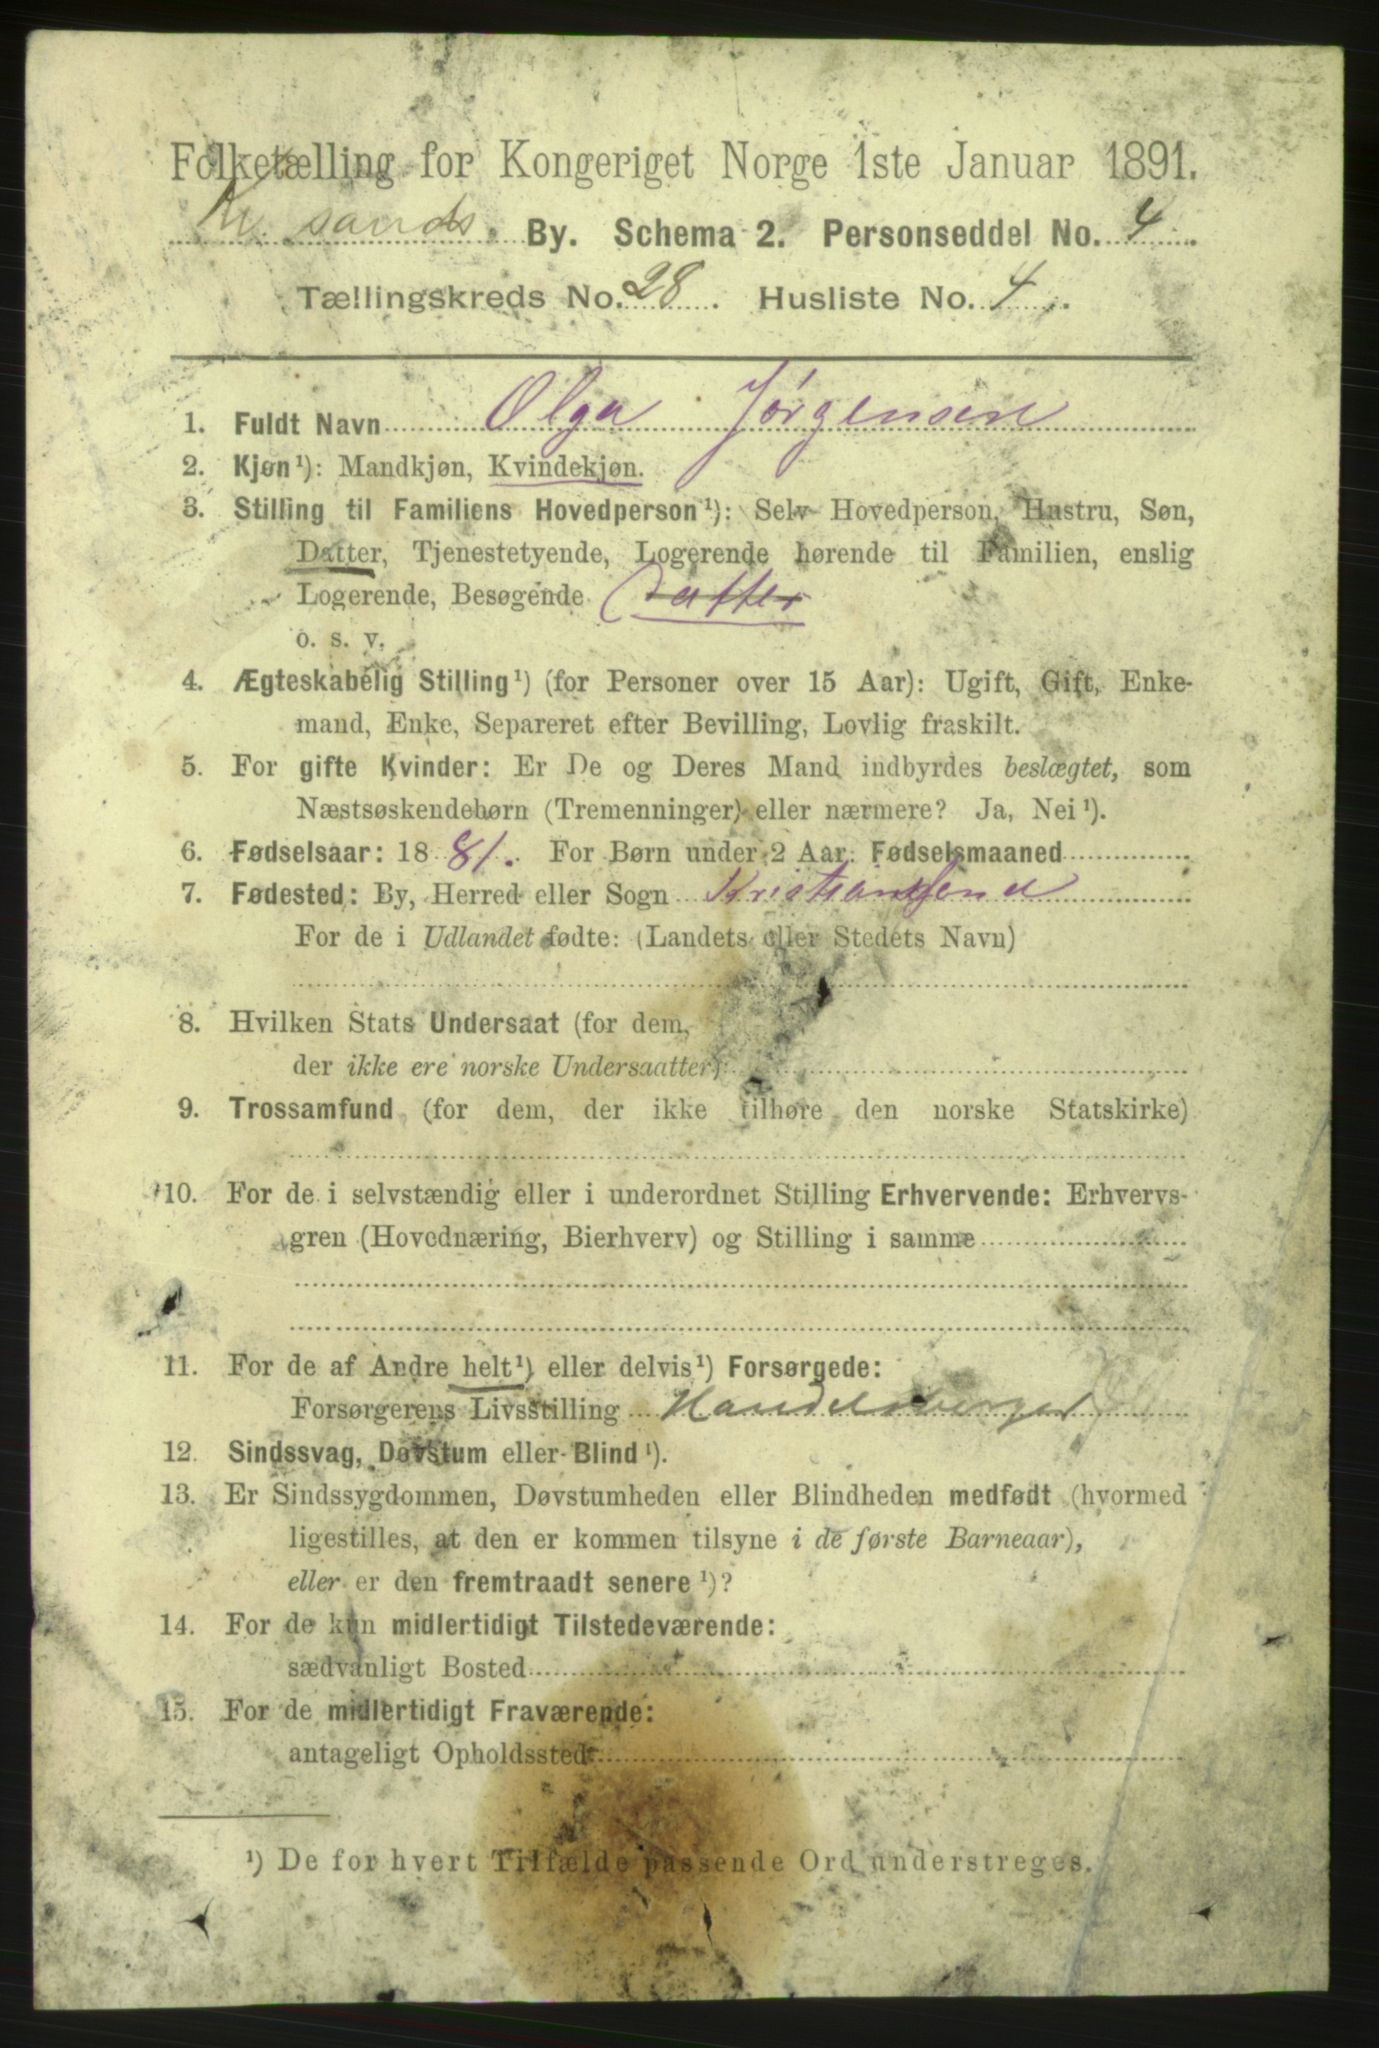 Folketælling for Kongeriget Norge 1ste Januar 1891.
Kr.sands By. Schema 2. Personseddel No. 4.
Tællingskreds No. 28. Husliste No. 4.
1. Fuldt Navn Olga Jørgensen
2. Kjøn¹): Mandkjøn, Kvindekjøn.
3. Stilling til Familiens Hovedperson¹): Selv Hovedperson, Hustru, Søn,
Datter, Tjenestetyende, Logerende hørende til Familien, enslig
Logerende, Besøgende Datter
o. s. v.
4. Ægteskabelig Stilling¹) (for Personer over 15 Aar): Ugift, Gift, Enke-
mand, Enke, Separeret efter Bevilling, Lovlig fraskilt.
5. For gifte Kvinder: Er De og Deres Mand indbyrdes beslægtet, som
Næstsøskendebørn (Tremenninger) eller nærmere? Ja, Nei¹).
6. Fødselsaar: 1881. For Børn under 2 Aar: Fødselsmaaned
7. Fødested: By, Herred eller Sogn Kristiansand
For de i Udlandet fødte: (Landets eller Stedets Navn)
8. Hvilken Stats Undersaat (for dem,
der ikke ere norske Undersaatter)
9. Trossamfund (for dem, der ikke tilhøre den norske Statskirke)
10. For de i selvstændig eller i underordnet Stilling Erhvervende: Erhvervs-
gren (Hovednæring, Bierhverv) og Stilling i samme
11. For de af Andre helt¹) eller delvis¹) Forsørgede:
Forsørgerens Livsstilling Handelsborger
12. Sindssvag, Døvstum eller Blind¹).
13. Er Sindssygdommen, Døvstumheden eller Blindheden medfødt (hvormed
ligestilles, at den er kommen tilsyne i de første Barneaar),
eller er den fremtraadt senere¹)?
14. For de kun midlertidigt Tilstedeværende:
sædvanligt Bosted
15. For de midlertidigt Fraværende:
antageligt Opholdssted
¹) De for hvert Tilfælde passende Ord understreges.